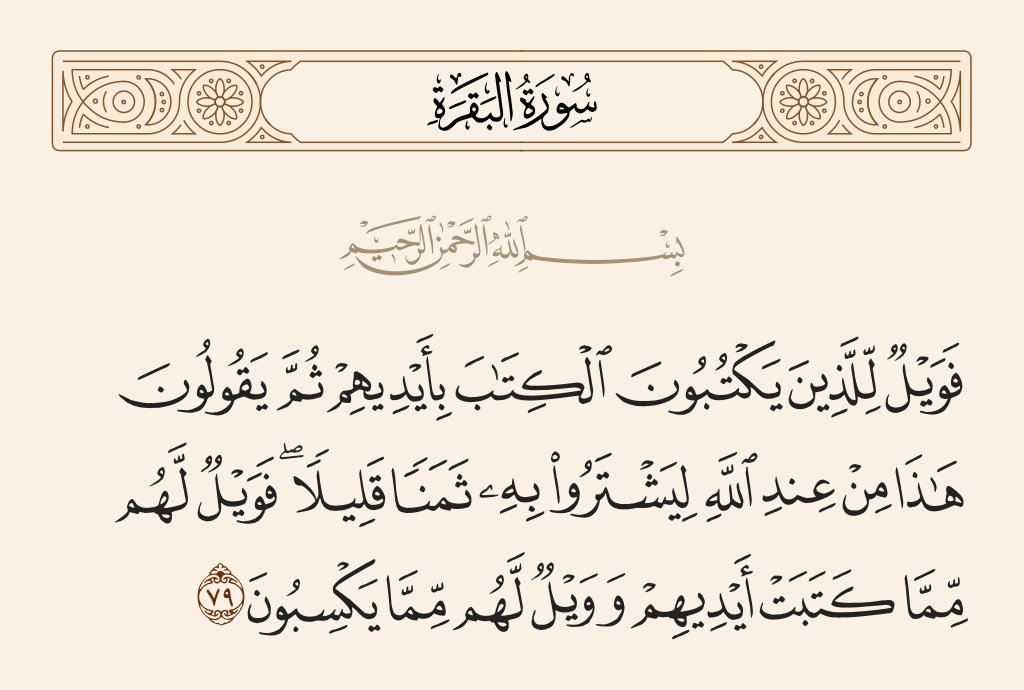 سُورَةُ البَقَرَةِ
بِسْمِ ٱللَّهِ ٱلرَّحْمَٰنِ ٱلرَّحِيمِ
فَوَيْلٌ لِّلَّذِينَ يَكْتُبُونَ ٱلْكِتَٰبَ بِأَيْدِيهِمْ ثُمَّ يَقُولُونَ
هَٰذَا مِنْ عِندِ ٱللَّهِ لِيَشْتَرُوا۟ بِهِۦ ثَمَنًا قَلِيلًا ۖ فَوَيْلٌ لَّهُم
مِّمَّا كَتَبَتْ أَيْدِيهِمْ وَ وَيْلٌ لَّهُم مِّمَّا يَكْسِبُونَ ٧٩